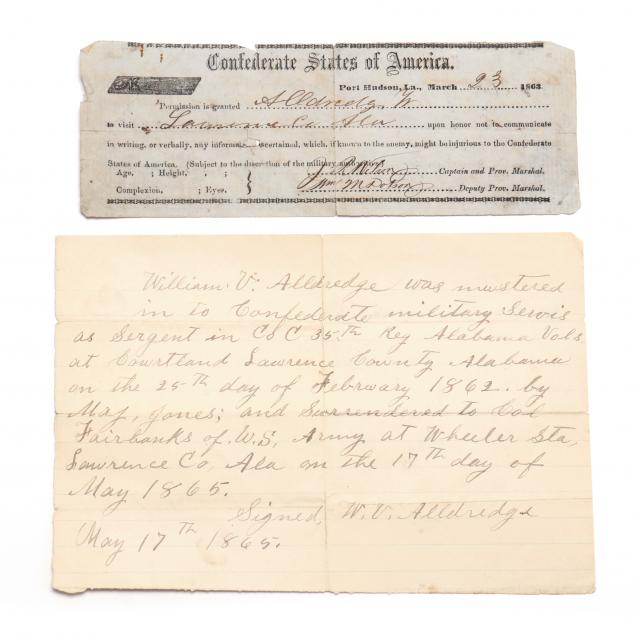 Confederate States of America.
Port Hudson, La., March 23 1863
Permission is granted Alldredge, W.
to visit Lawrence Co Ala upon honor not to communicate
in writing, or verbally, any informa ascertained, which, if known to the enemy, might be injurious to the Confederate
States of America. (Subject to the discretion of the military authorities
Age, ; Height, ; } Captain and Prov. Marshal.
Complexion, ; Eyes, Deputy Prov. Marshal.
William. V. Alldredge was mustered
in to Confederate military Servis
as Sergent in Co C 35th Reg Alabama Vols
at Courtland Lawrence County Alabama
on the 25th day of Febrwary 1862. by
Maj, Jones; and Surrendered to Col
Fairbanks of. U.S, Army at Wheeler Sta,
Lawrence Co, Ala on the 17th day of
May 1865.
Signed, W. V. Alldredge
May 17th 1865.